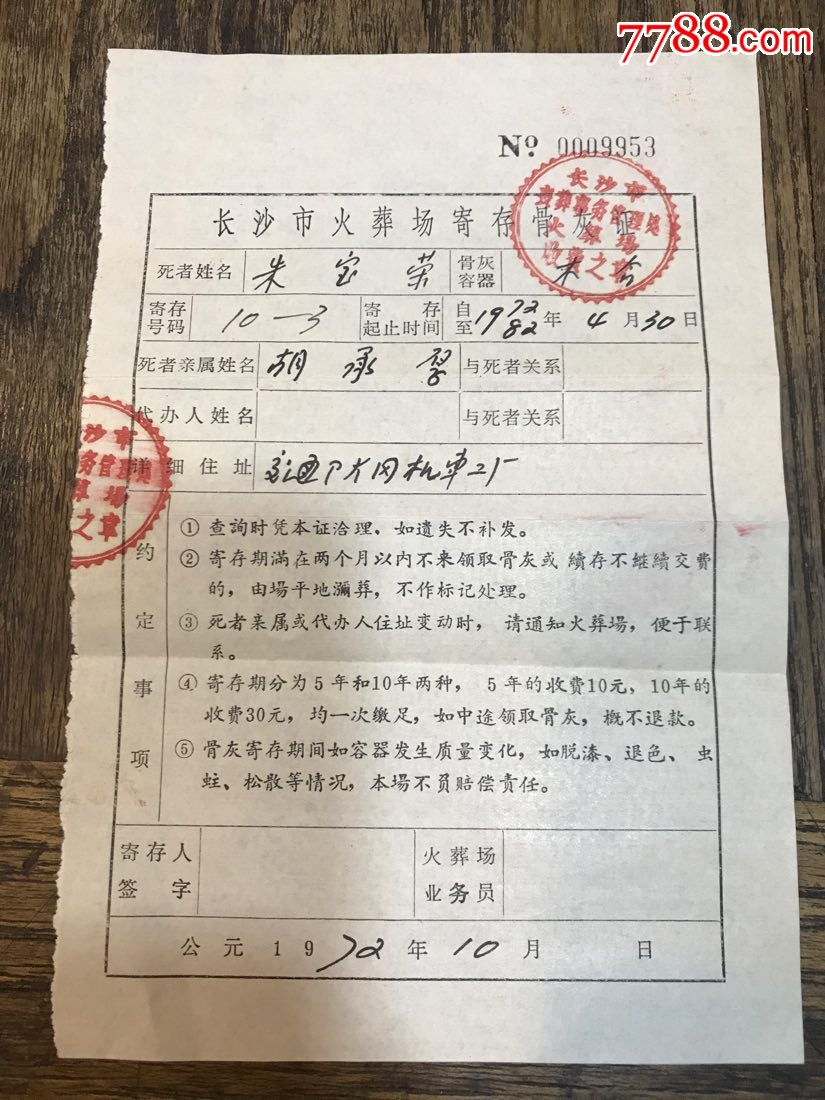 7788.com
№ 0009953
长沙市火葬场寄存骨灰证
死者姓名 朱宝荣 骨灰容器 木合
寄存号码 10—3 寄存起止时间 自至1972 82年4月30日
死者亲属姓名 胡承 与死者关系
代办人姓名 与死者关系
详细住址 机车工厂
约定事项
① 查詢时凭本证洽理,如遺失不补发。
② 寄存期滿在两个月以内不来领取骨灰或續存不継續交費
的,由場平地瀰葬,不作标记处理。
③ 死者亲属或代办人住址变动时,请通知火葬場,便于联
系。
④ 寄存期分为5年和10年两种,5年的收費10元,10年的
收費30元,均一次缴足,如中途领取骨灰,概不退款。
⑤ 骨灰寄存期间如容器发生质量变化,如脱漆、退色、虫
蛀、松散等情况,本場不负赔偿责任。
寄存人签字 火葬场业务员
公元1972年10月 日
长沙市
火葬場
之章
沙市
务管理
之章